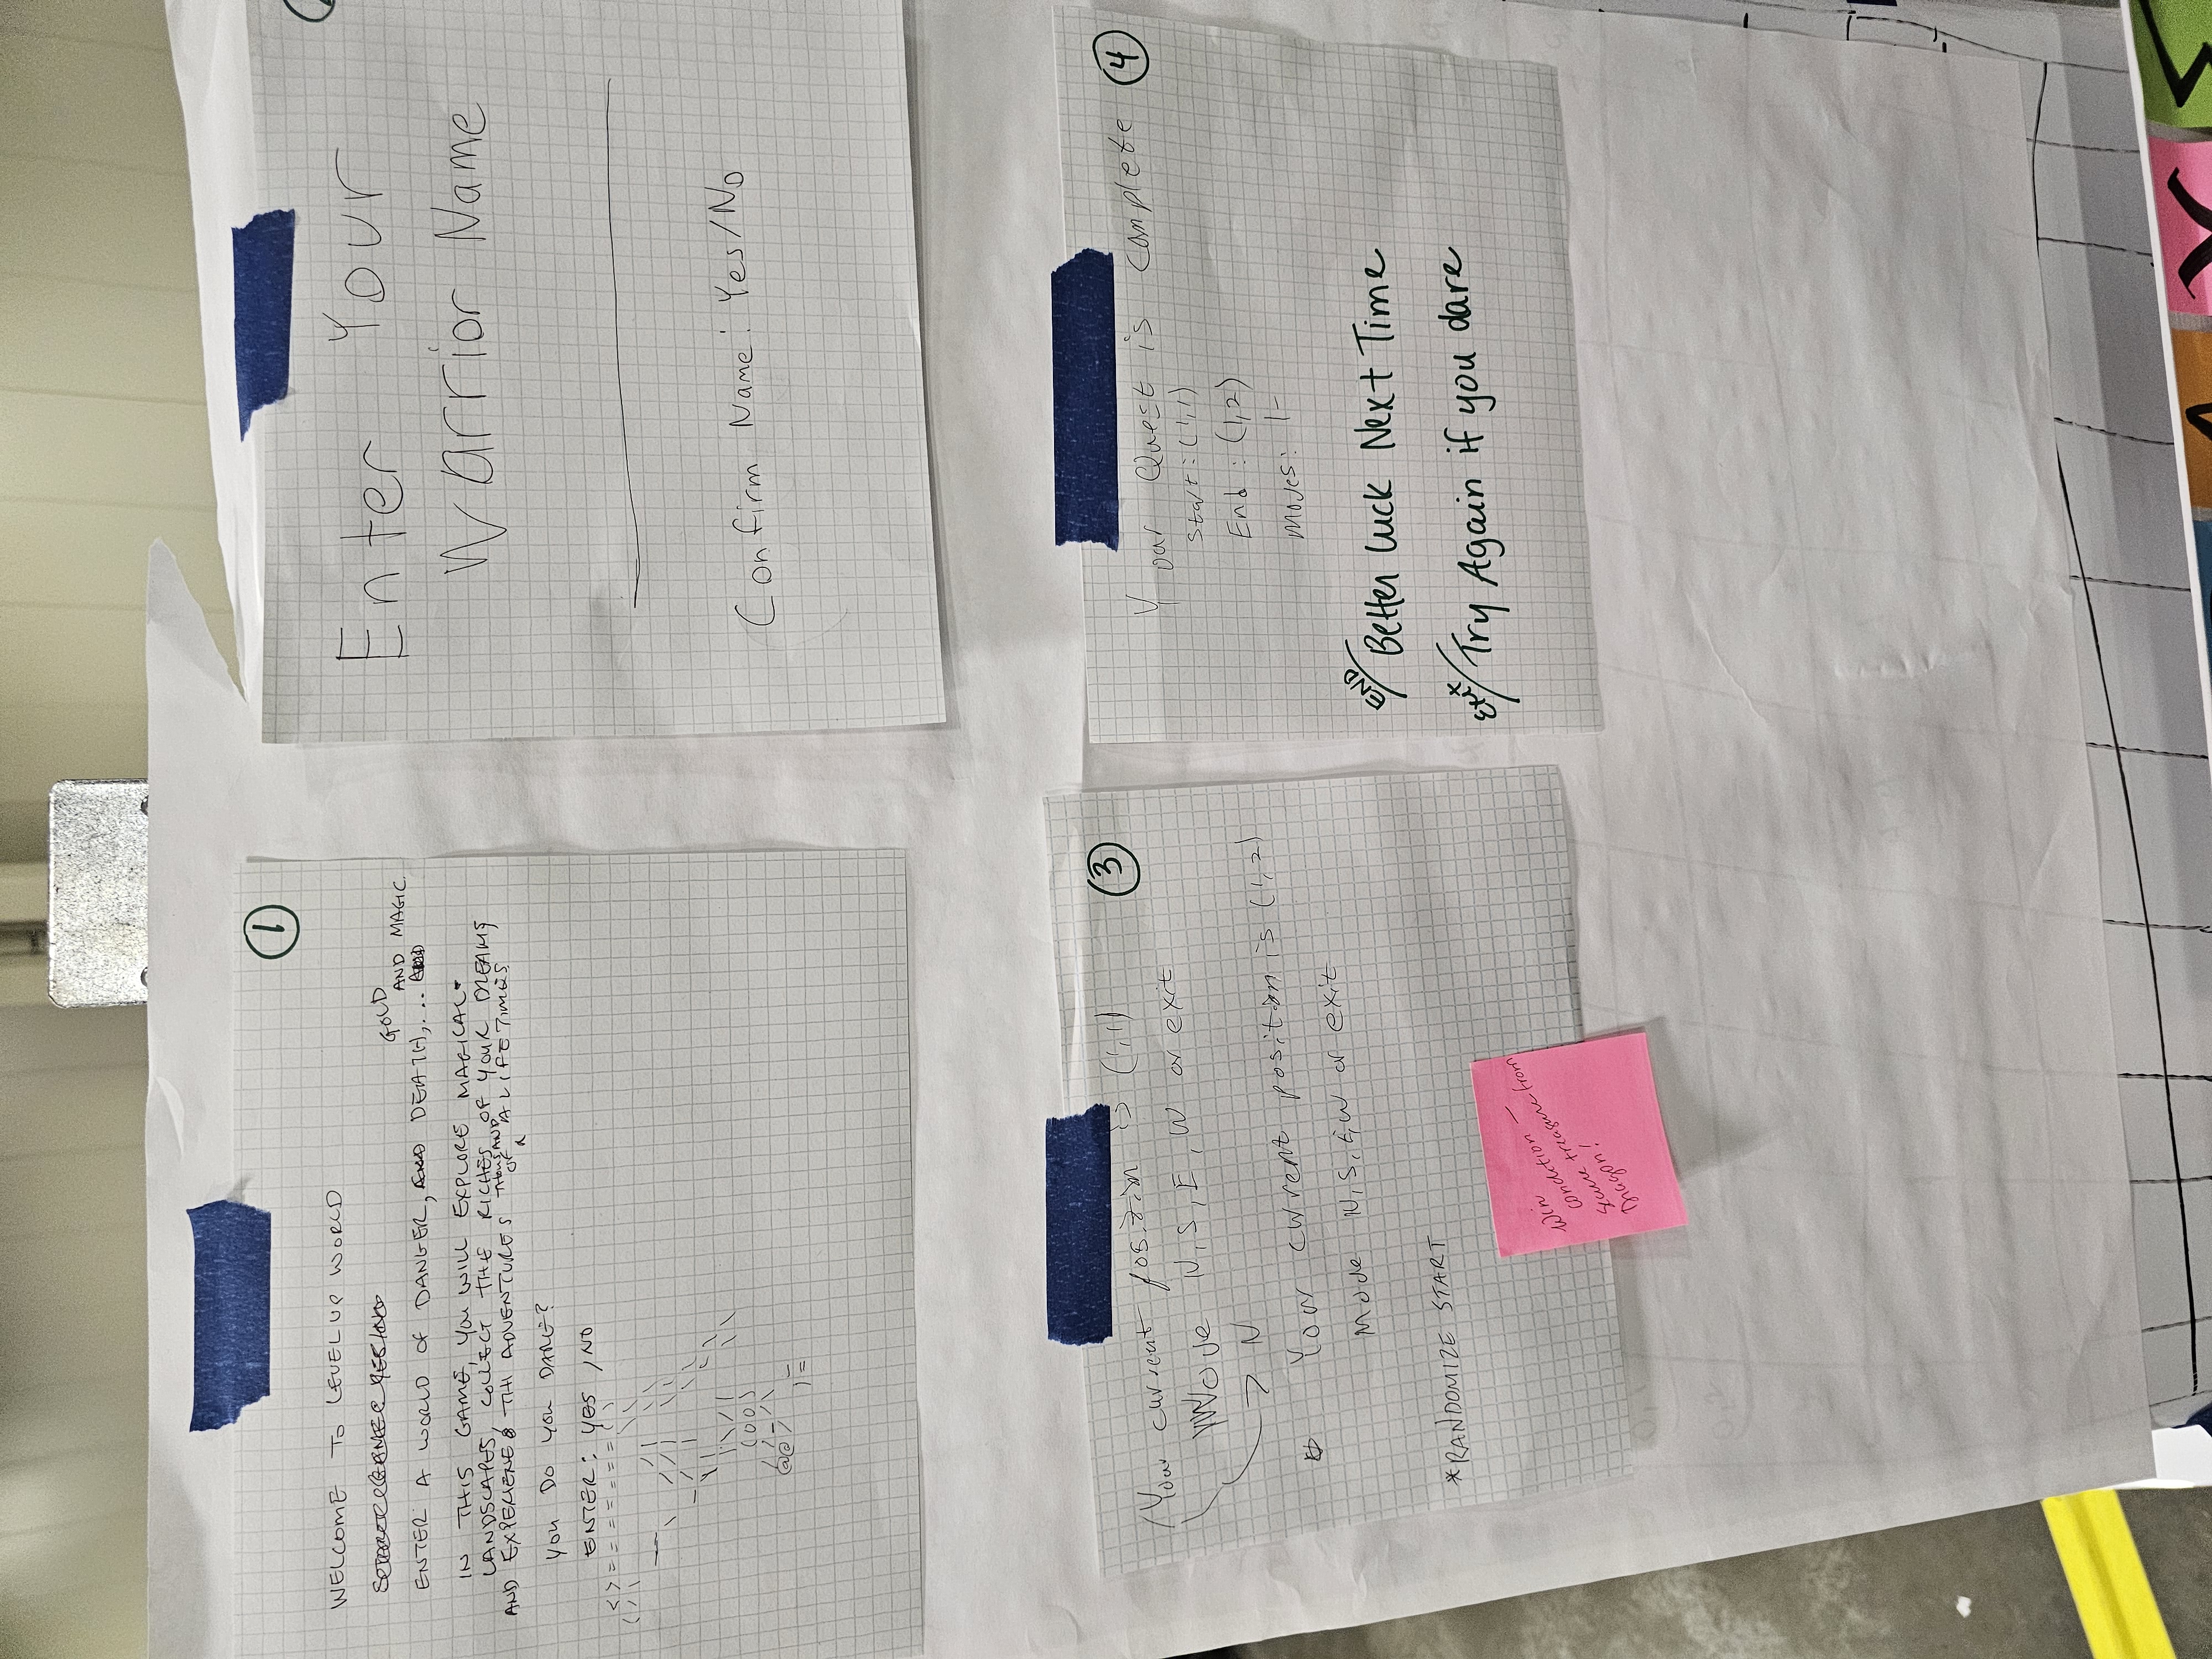 1
WELCOME TO LEVEL UP WORLD
START GAME YES/NO
ENTER A WORLD OF DANGER, AND DEATH,... GOLD AND MAGIC.
IN THIS GAME, YOU WILL EXPLORE MAGICAL
LANDSCAPES, COLLECT THE RICHES OF YOUR DREAMS
AND EXPERIENE THE ADVENTURES OF A THOUSAND LIFETIMES
YOU DO YOU DARE?
ENTER: YES / NO
Enter Your
Warrior Name
Confirm Name: Yes/No
3
Your current position is (1,1)
Move N, S, E, W or exit
> N
Your current position is (1,2)
Move N, S, E, W or exit
*RANDOMIZE START
Win
condition -
secure treasure from
Dragon!
4
Your Quest is complete
Start: (1,1)
End: (1,2)
Moves: 1-
END/ Better Luck Next Time
Exit/ Try Again if you dare